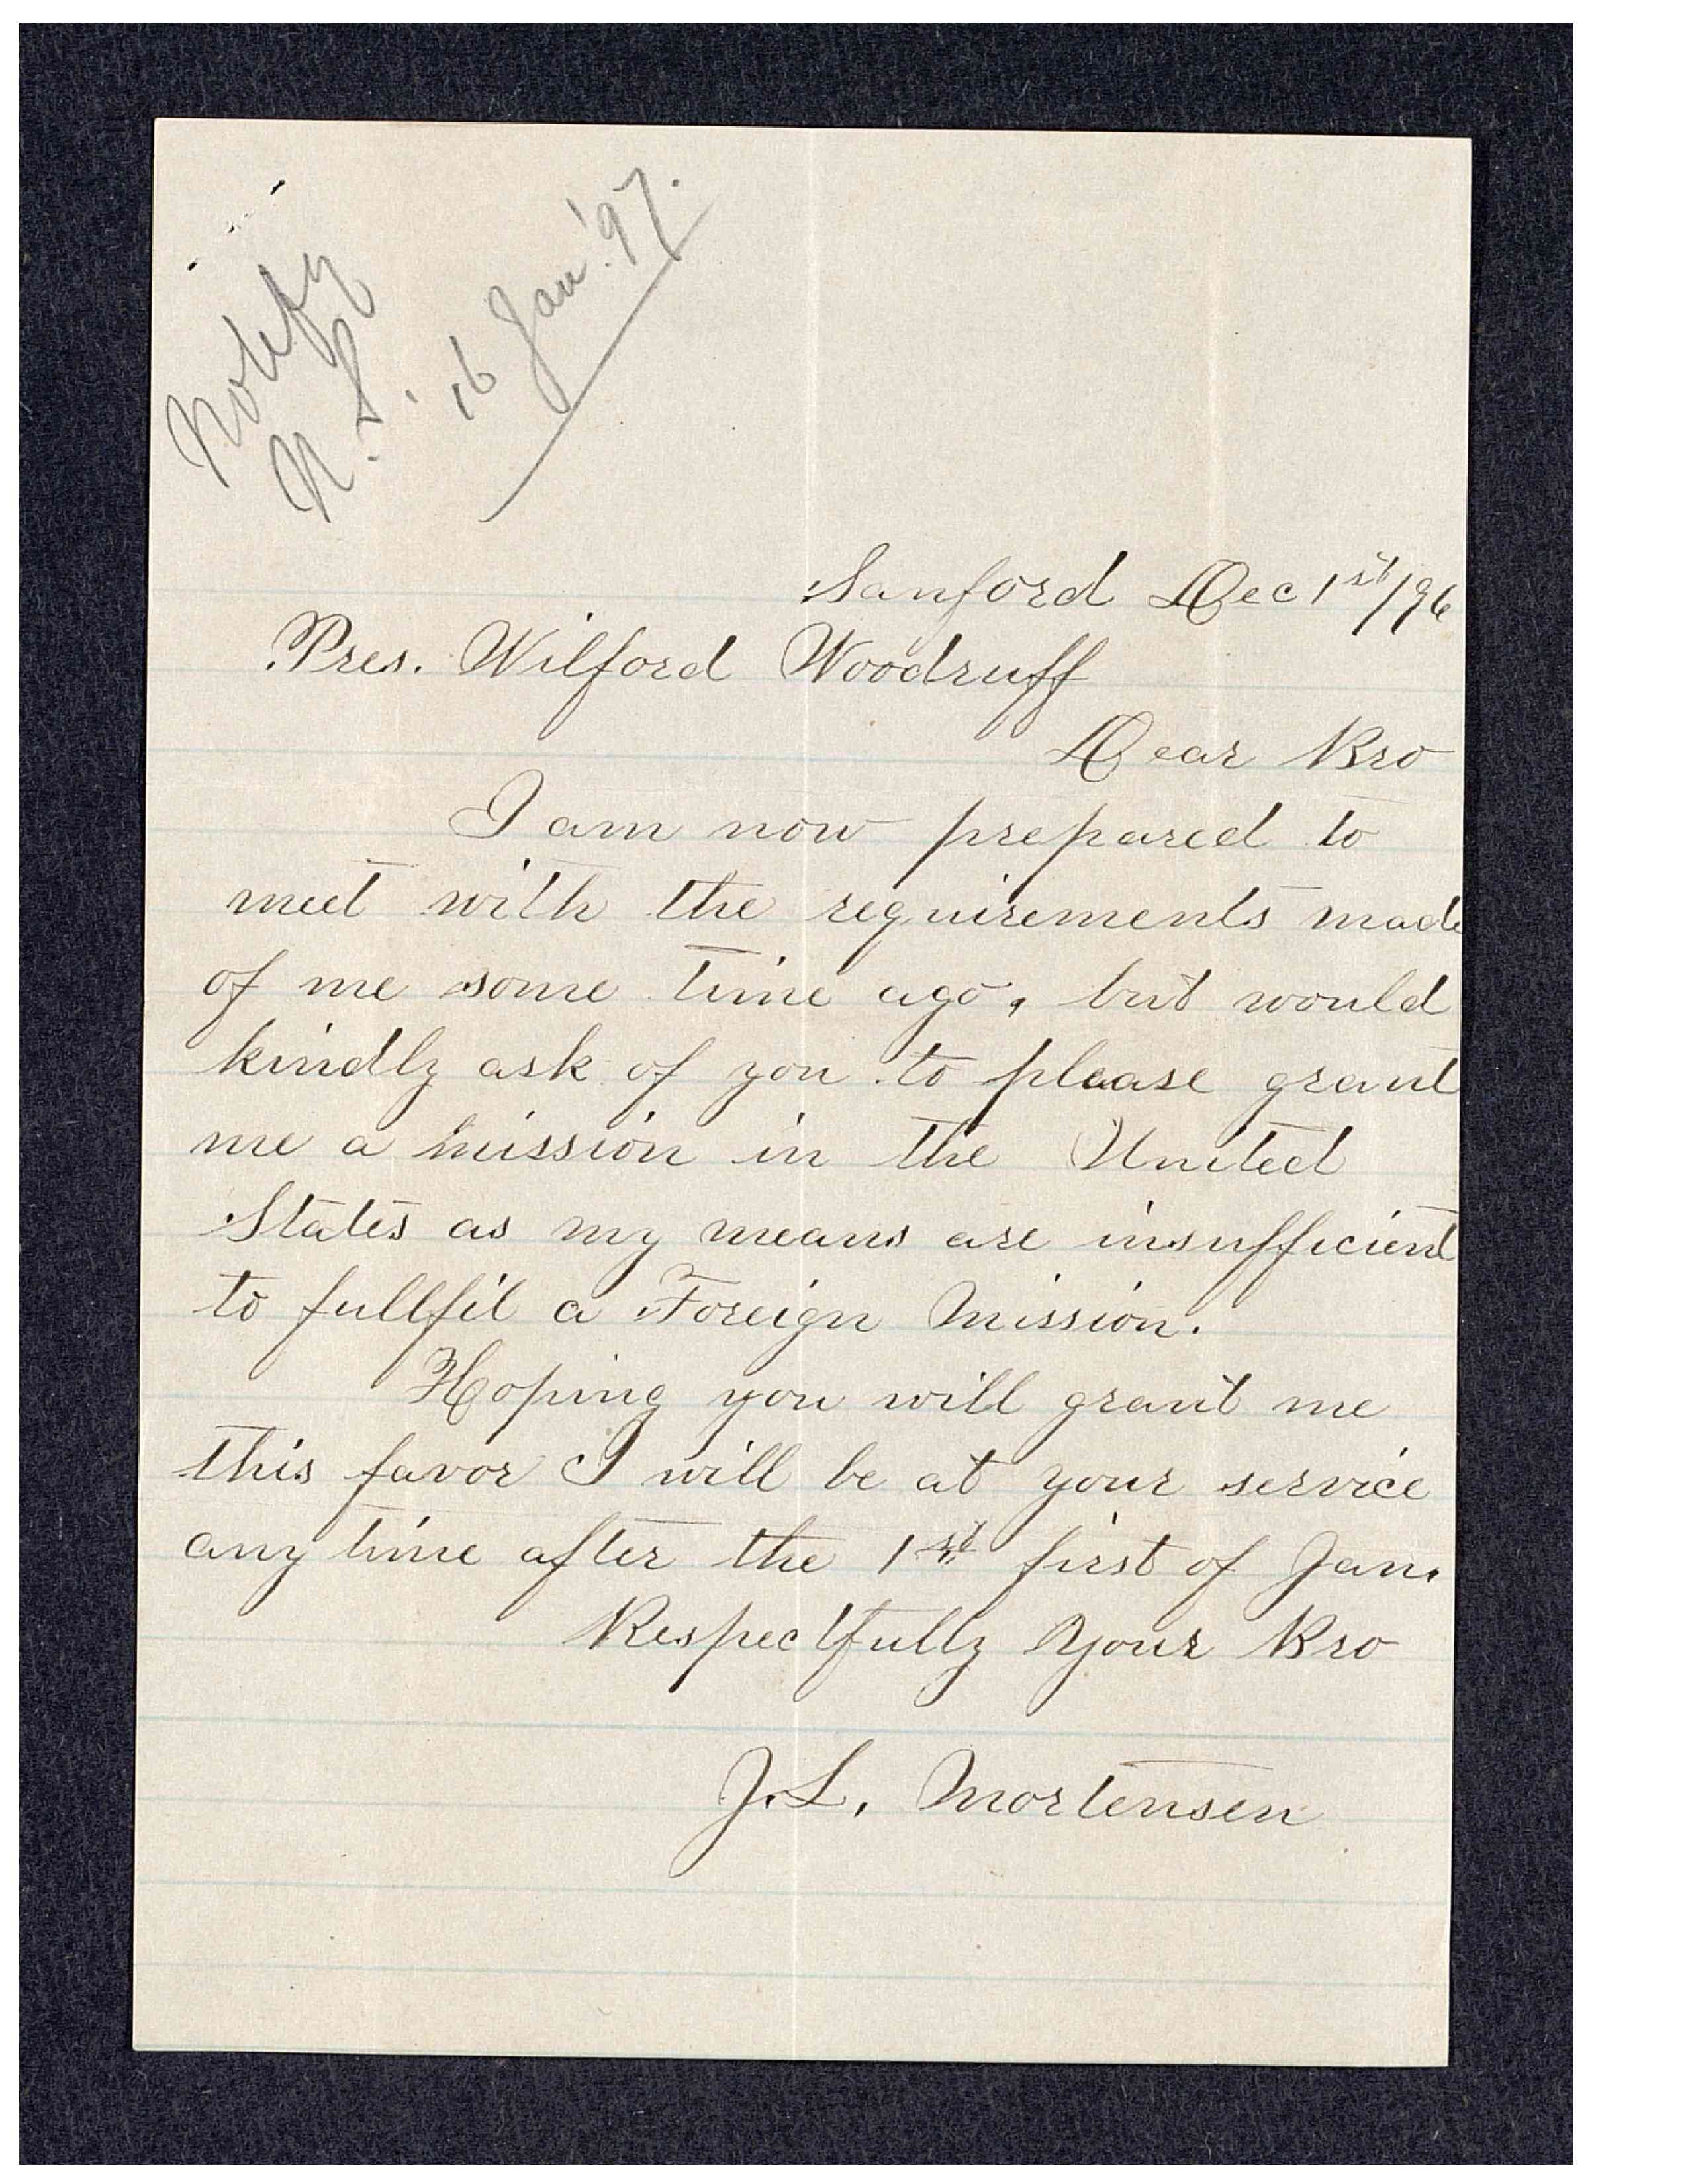 Notify
N. S.
16 Jan'. 97.
Sanford Dec 1st/96
Pres. Wilford Woodruff
Dear Bro
I am now prepared to
meet with the requirements made
of me some time ago, but would
kindly ask of you to please grant
me a mission in the United
States as my means are insufficient
to fullfil a Foreign Mission.
Hoping you will grant me
this favor I will be at your service
any time after the 1st first of Jan.
Respectfully Your Bro
J. L. Mortensen